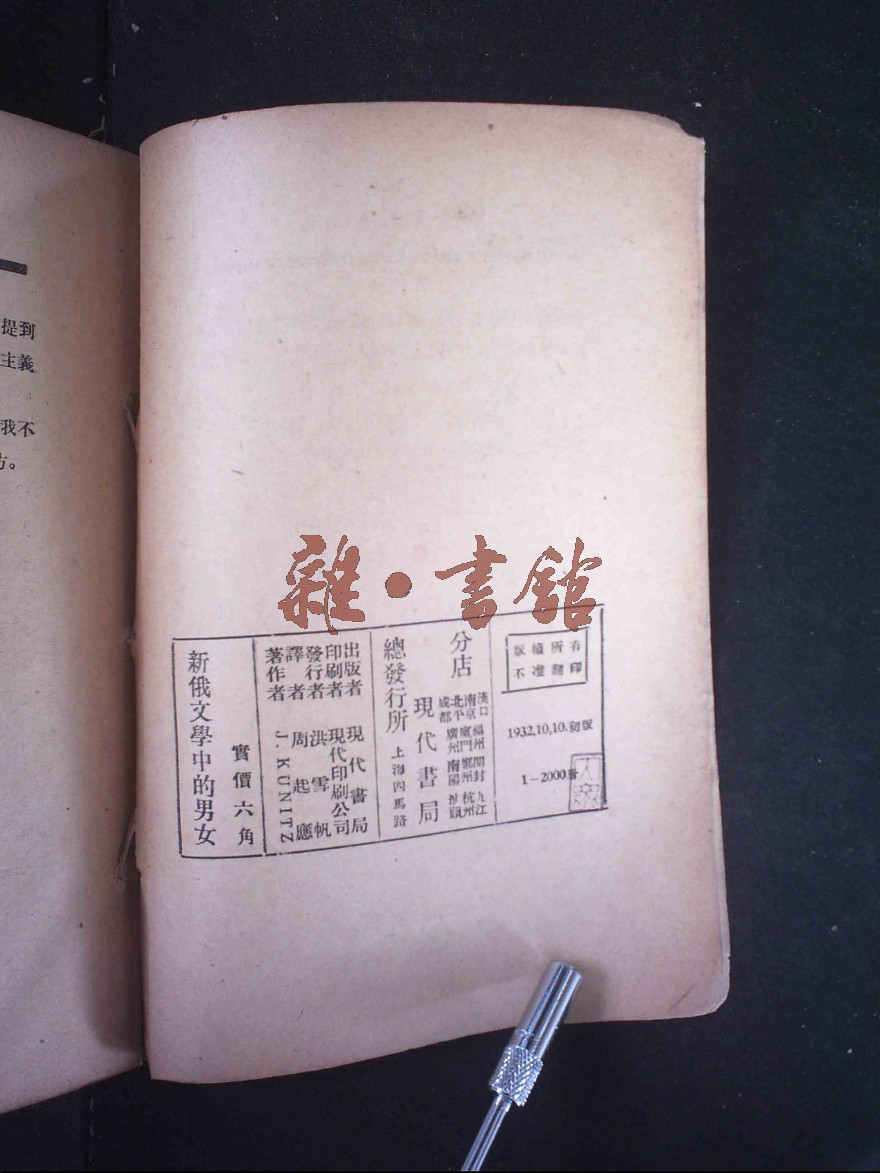 提到
主義
我不
方。
雜·書館
版權所有
不准翻印
1932,10,10.初版
1—2000冊
分店
漢口 福州 開封 九江
南京 廈門 鄭州 杭州
北平 廣州 南陽 汕頭
成都
現代書局
總發行所
上海四馬路
出版者 現代書局
印刷者 現代印刷公司
發行者 洪雪帆
譯者 周起應
著作者 J. KUNITZ
實價六角
新俄文學中的男女